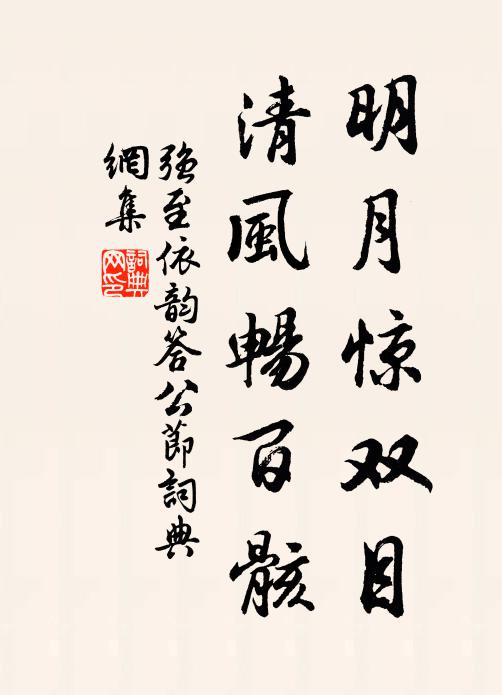 明月惊双目
清風暢百骸
强至依韵答公節詞典
網集
詞典
网印